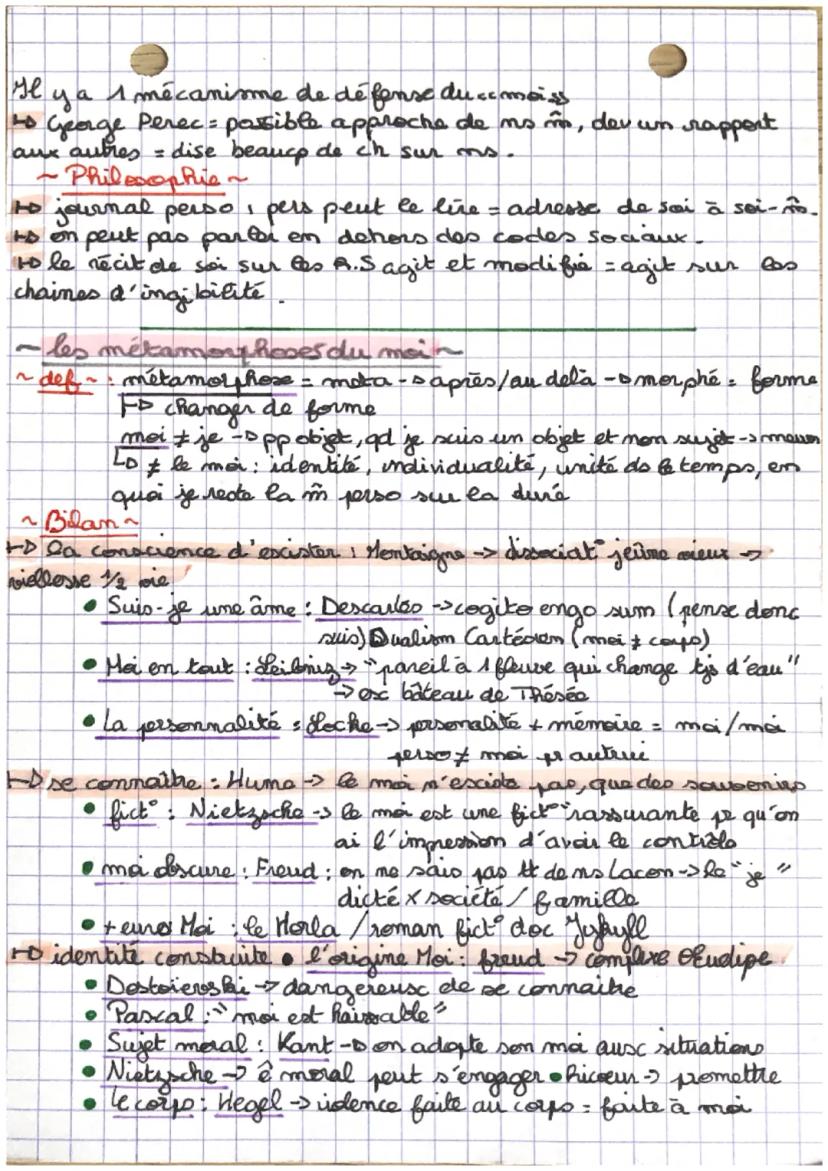 Il y a 1 mécanisme de défense du << moi >>
↳ George Perec = possible approche de ns m̂, dev un rapport
aux autres = dise beaucp de ch sur ns.
~ Philosophie ~
↳ journal perso, pers peut le lire = adresse de soi à soi-m̂.
↳ on peut pas parler en dehors des codes sociaux.
↳ le récit de soi sur les R.S agit et modifie = agit sur les
chaines d'
~ les métamorphoses du moi ~
~ def ~ : métamorphose = meta → après/au delà → morphé = forme
↳ changer de forme
moi ≠ je → pp objet, qd je suis un objet et non sujet →
↳ ≠ le moi : identité, individualité, unité ds le temps, en
quoi je reste la m̂ perso sur la duré
~ Bilan ~
↳ la conscience d'exister : Montaigne → dissociat° jeûne vieux →
viellesse 1/2 vie
• Suis-je une âme : Descartes → cogito engo sum (pense donc
suis) Dualism Cartésien (moi ≠ corps)
• Moi en tout : Leibniz → "pareil à 1 fleuve qui change tjs d'eau"
→ ex bâteau de Thésée
• La personnalité : Locke → personalité + mémoire = moi/moi
perso ≠ moi pr autrui
↳ se connaître : Hume → le moi n'existe pas, que des souvenirs
• fict° : Nietzsche → le moi est une fict° rassurante pr qu'on
ai l'impression d'avoir le contrôle
• moi obscure : Freud : on ne sais pas tt de ns Lacan → le "je"
dicté × société / famille
• + eurs Moi : le Horla / roman fict° doc Jykyll
↳ identité construite • l'origine Moi : freud → complexe OEudipe.
• Dostoïevski → dangereux de se connaître
• Pascal : "moi est haïssable"
• Sujet moral : Kant → on adapte son moi aux situations
• Nietzsche → ê moral peut s'engager • Ricoeur → promettre
• le corps : Hegel → violence faite au corps = faite à moi